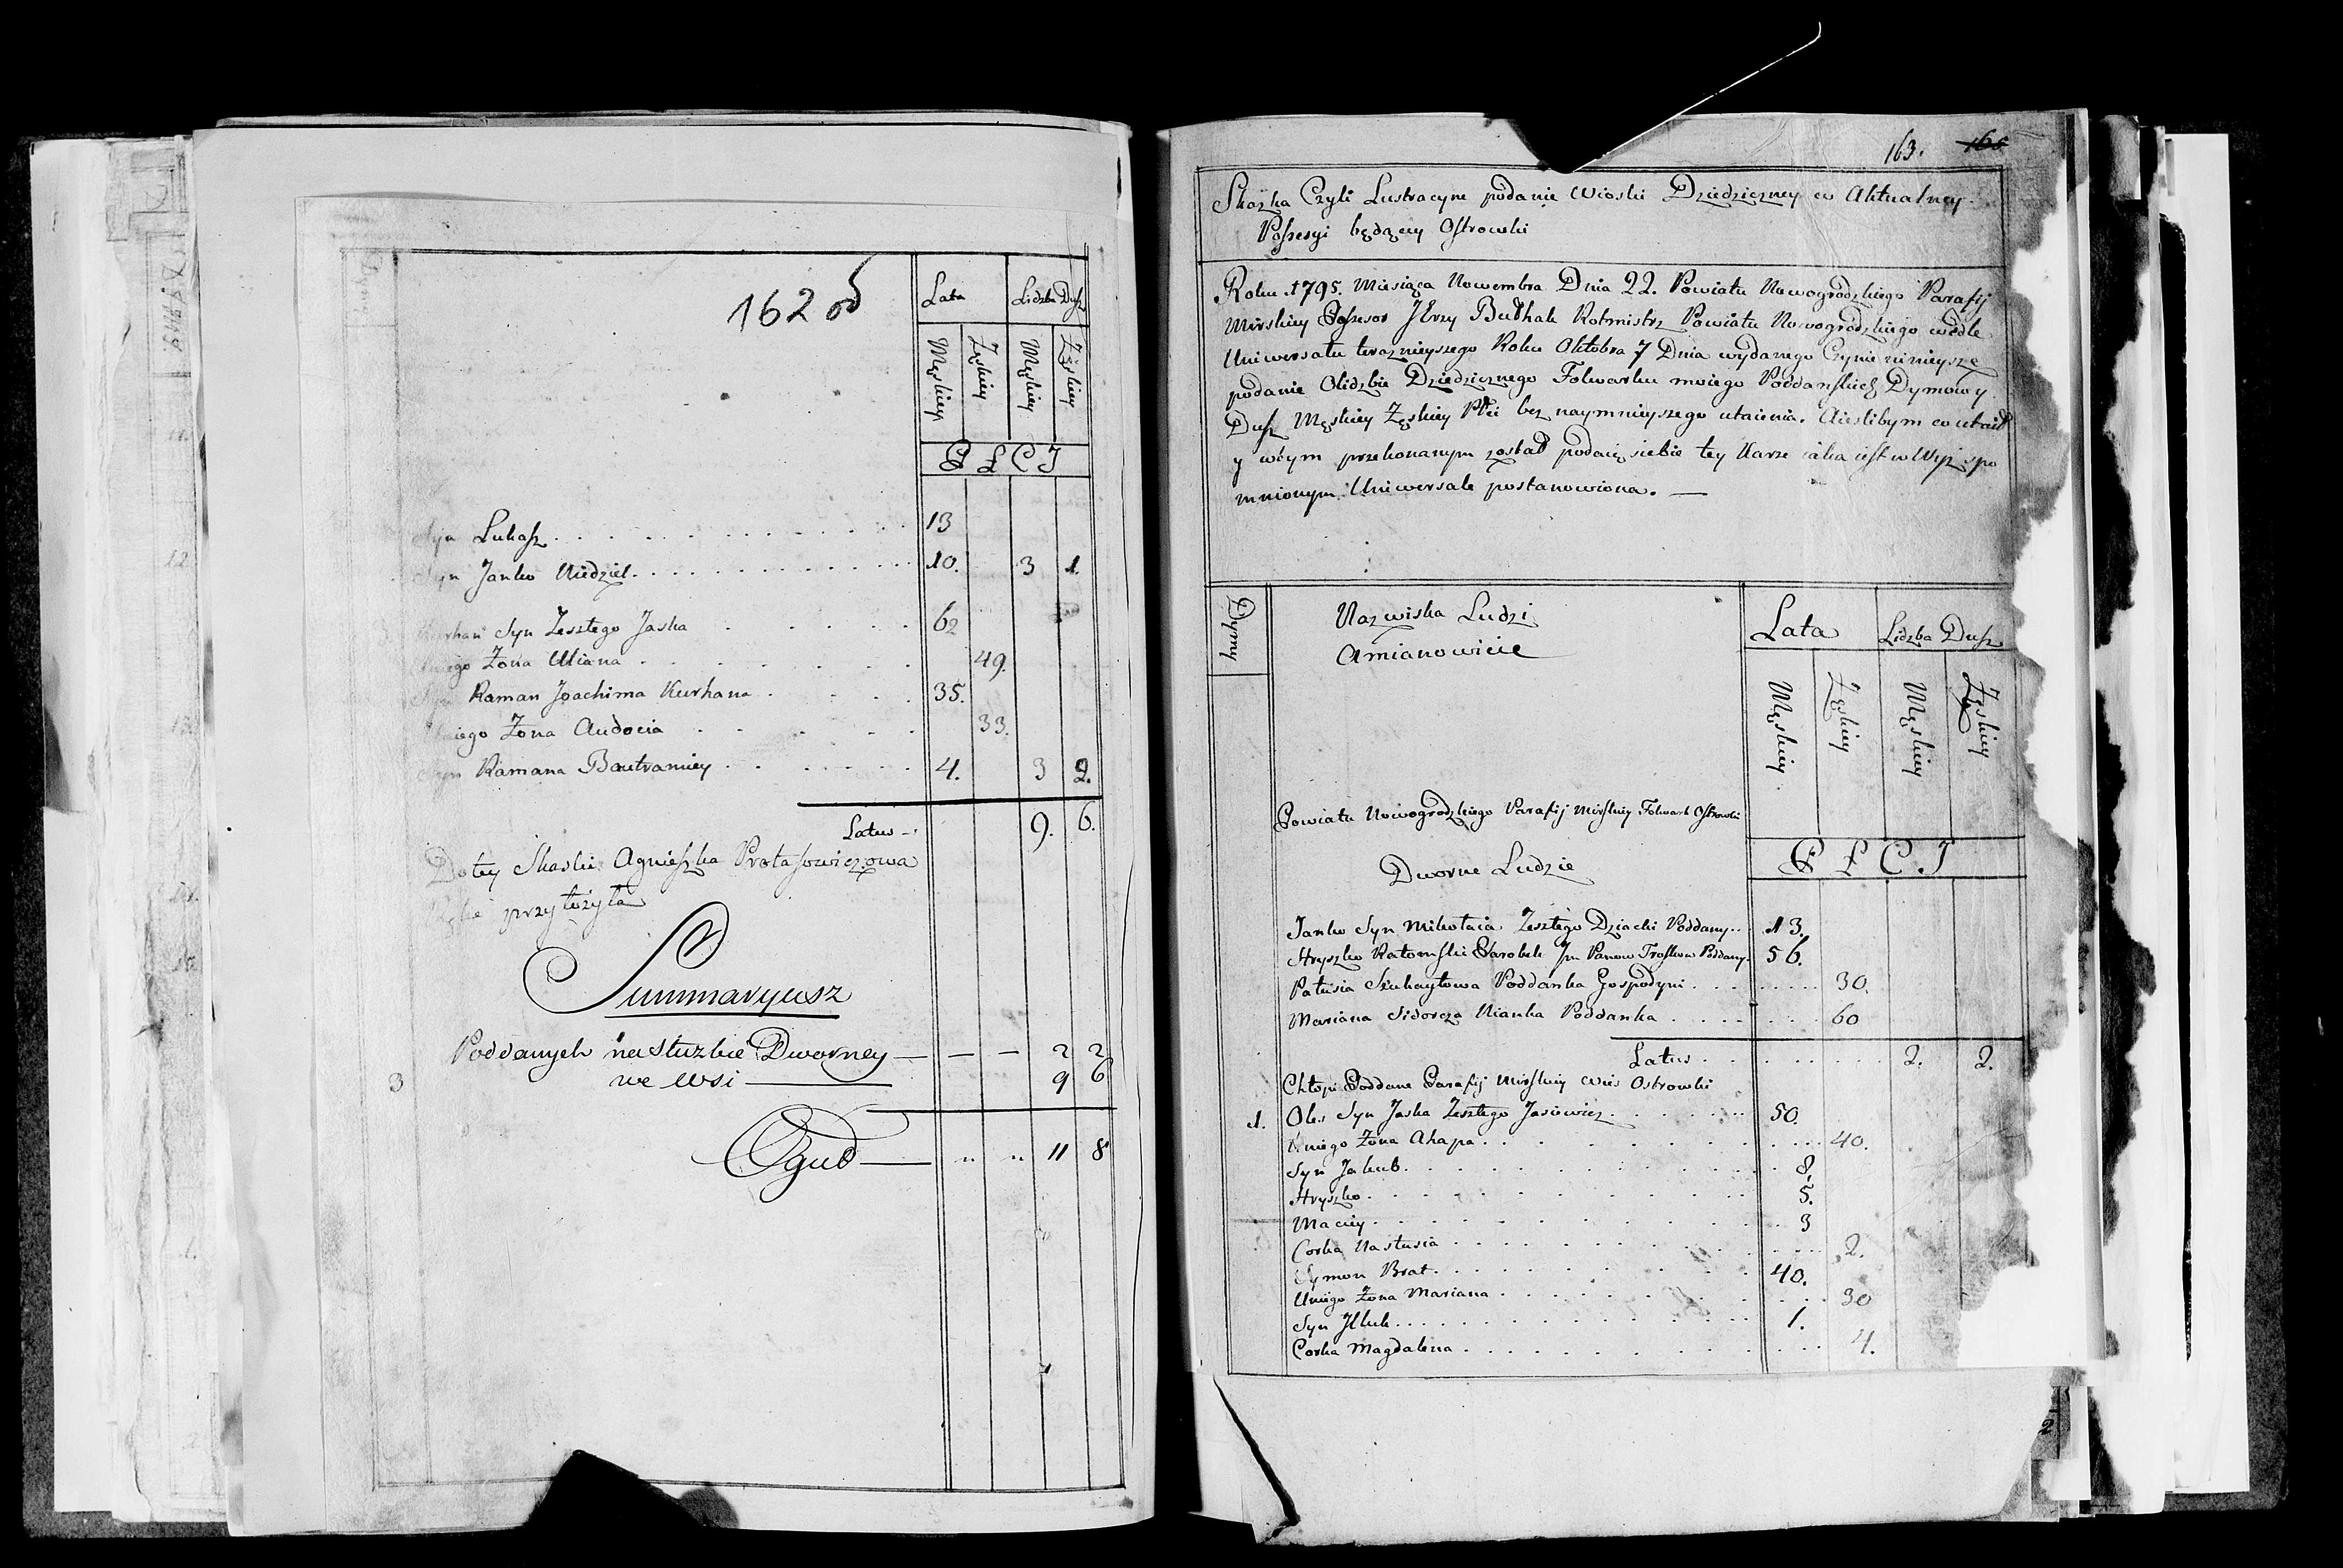 162 об
Lata Liczba Dusz
Męskiey Żęskiey Męskiey Żęskiey
P Ł C I
Syn Lukasz 13
Syn Janko Niedziel 10. 3 1.
Kurhan Syn Zeszłego Jaska 62
Uniego Żona Uliana 49.
Syn Raman Joachima Kurhana 35.
Uniego Żona Audocia 33.
Syn Ramana Bautramiey 4. 3 2.
Latus 9. 6.
Do tey Skaski Agnieszka Protasowiczowa
Rękę przyłożyła
Summaryusz
Poddanych na Służbie Dworney — — — 2 2
3 we Wsi — 9 6
Oguł — " " 11 8
163. 165
Skazka Czyli Lustracyne podanie Wioski Dziedziczney w Aktualney
Possesyi będącey Ostrowski
Roku 1795. Miesiąca Nowembra Dnia 22. Powiatu Nowogrodzkiego Parafij
Mirskiey Possesor JErzy Bułhak Rotmistrz Powiatu Nowogrodzkiego wedle
Uniwersału teraznieyszego Roku Oktobra 7 Dnia wydanego Czynie ninieysze
podanie Olidzbie Dziedzicznego Folwarku moiego Poddanskich Dymow y
Dusz Męskiey Żęskiey Płci bez naymnieyszego utaienia. Aieslibym co utaił
y wtym przekonanym został podaię siebie tey Karze iaka iest w Wyż spo
mnionym Uniwersale postanowiona. —
Dymy
Nazwiska Ludzi
Amianowicie
Lata Lidzba Dusz
Męskiey Żęskiey Męskiey Żęskiey
Powiatu Nowogrodzkiego Parafij Mirskiey Folwark Ostrowski
P Ł C I
Dworne Ludzie
Janko Syn Mikołaia Zeszłego Dziacki Poddany 13.
Hryszko Ratomski Parobek Jm Panow Troskow Poddany 56.
Patusia Szukaytowa Poddanka Gospodyni 30.
Mariana Sidorcza Nianka Poddanka 60
Latus 2. 2.
Chłopi Poddane Parafij Mirskiey Wieś Ostrowski
1. Oles Syn Jaska Zeszłego Jasiewicz 50.
Uniego Żona Ahapa 40.
Syn Jakub 8.
Hryszko 5.
Maciey 3
Corka Nastusia 2.
Symon Brat 40.
Uniego Żona Mariana 30
Syn Illuk 1.
Corka Magdalena 4.